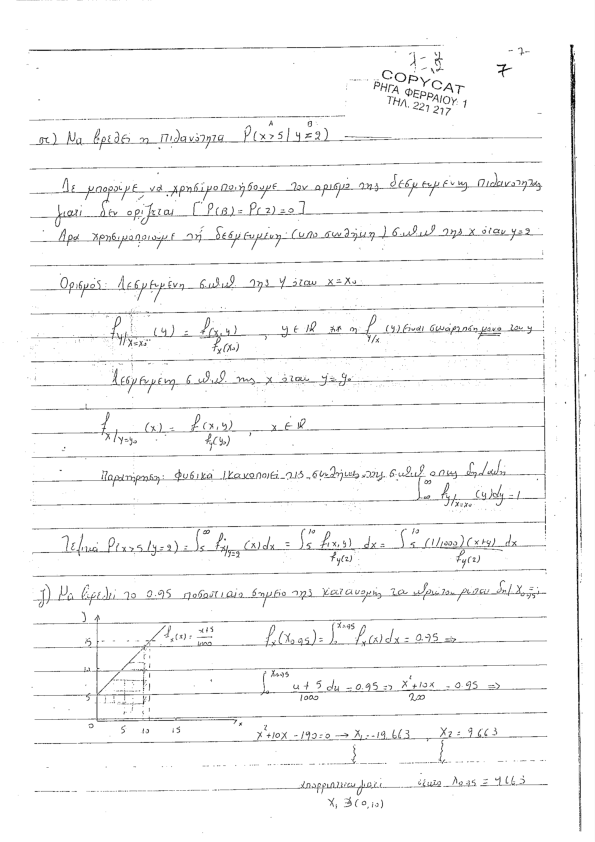 -7-
7
COPYCAT
ΡΗΓΑ ΦΕΡΡΑΙΟΥ 1
ΤΗΛ. 221 217
στ) Να βρεθεί η πιθανότητα P(x>5/y=2)
A B
Δε μπορούμε να χρησιμοποιήσουμε τον ορισμό της δεσμευμένης πιθανότητας
γιατί δεν ορίζεται [P(B)=P(2)=0]
Άρα χρησιμοποιούμε τη δεσμευμένη (υπό συνθήκη) σ.π.π της x όταν y=2
Ορισμός: Δεσμευμένη σ.π.π της y όταν x=x₀
f y/x=x₀ (y) = f(x,y) / fx(x₀) , y∈ℝ ** η f y/x (y) είναι συνάρτηση μόνο του y
Δεσμευμένη σ.π.π της x όταν y=y₀
f x/y=y₀ (x) = f(x,y) / fy(y₀) , x∈ℝ
Παρατήρηση: Φυσικά ικανοποιεί τις συνθήκες της σ.π.π όπως δηλαδή
∫₋∞^∞ f y/x=x₀ (y)dy=1
Τελικά P(x>5/y=2) = ∫₅^∞ f x/y=2 (x)dx = ∫₅^10 f(x,y) / fy(2) dx = ∫₅^10 (1/1000)(x+y) / fy(2) dx
ζ) Να βρεθεί το 0.95 ποσοστιαίο σημείο της κατανομής δηλ x₀.₉₅=;
y
fx(x) = x+5 / 1000
15
10
5
0 5 10 15 x
Fx(x₀.95) = ∫₀^x₀.95 fx(x)dx = 0.95 ⇒
∫₀^x₀.95 u+5 / 1000 du = 0.95 ⇒ x²+10x / 200 = 0.95 ⇒
x²+10x-190=0 → x₁=-19.663 , x₂=9.663
απορρίπτεται γιατί x₀.95 = 9.663
x₁ ∌ (0,10)